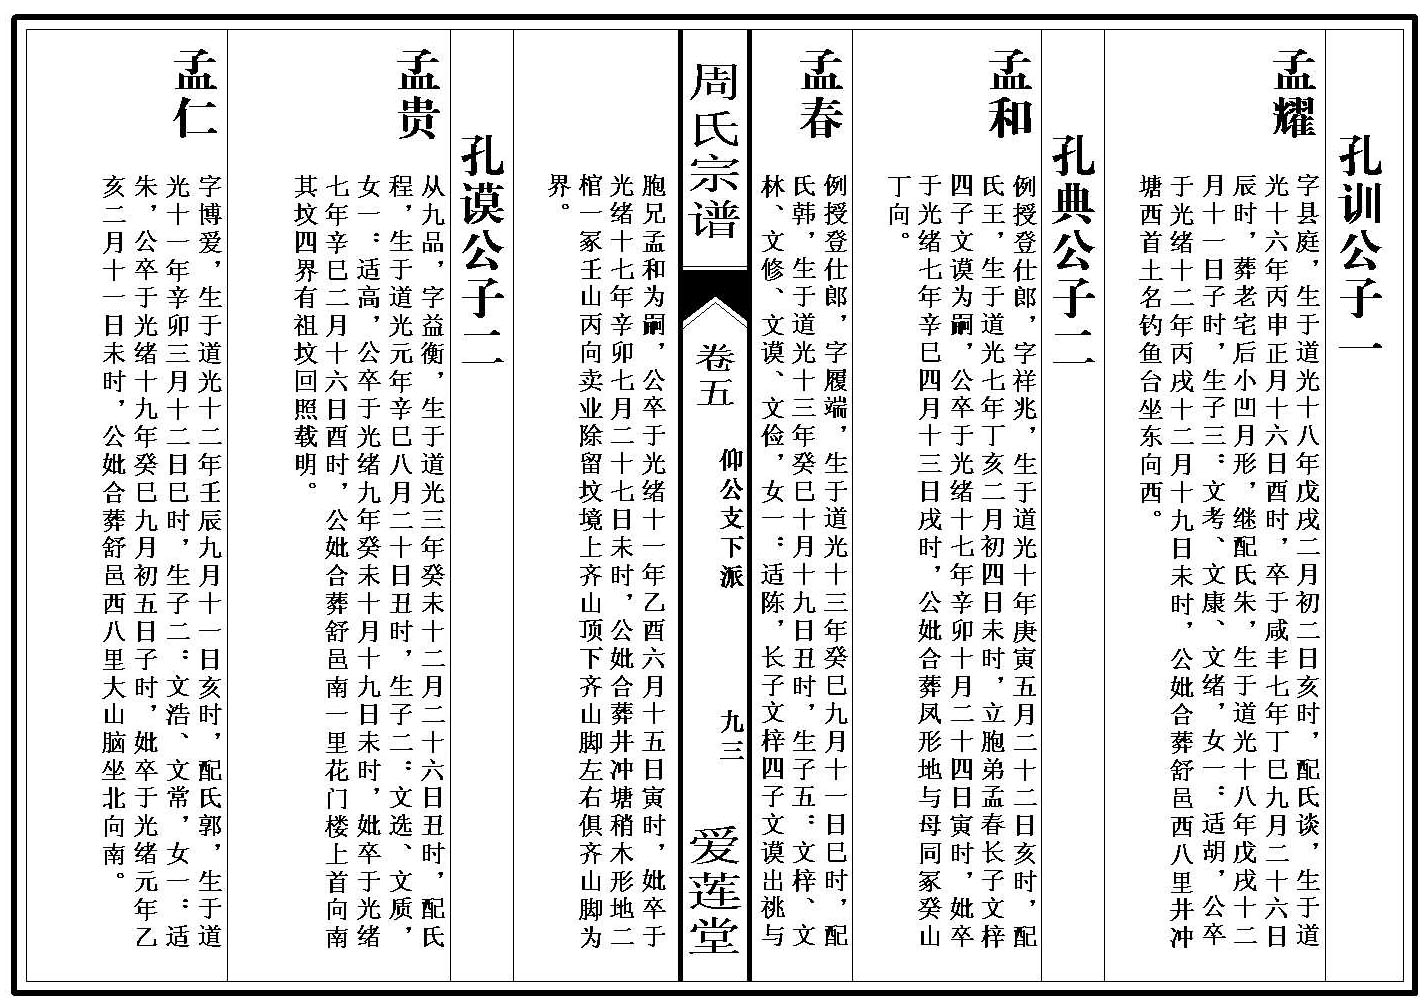 孔训公子一
孟耀
字县庭，生于道光十八年戊戌二月初二日亥时，配氏谈，生于道
光十六年丙申正月十六日酉时，卒于咸丰七年丁巳九月二十六日
辰时，葬老宅后小凹月形，继配氏朱，生于道光十八年戊戌十二
月十一日子时，生子三：文考、文康、文绪，女一：适胡，公卒
于光绪十二年丙戌十二月十九日未时，公妣合葬舒邑西八里井冲
塘西首土名钓鱼台坐东向西。
孔典公子二
孟和
例授登仕郎，字祥兆，生于道光十年庚寅五月二十二日亥时，配
氏王，生于道光七年丁亥二月初四日未时，立胞弟孟春长子文梓
四子文谟为嗣，公卒于光绪十七年辛卯十月二十四日寅时，妣卒
于光绪七年辛巳四月十三日戌时，公妣合葬凤形地与母同冢癸山
丁向。
孟春
例授登仕郎，字履端，生于道光十三年癸巳九月十一日巳时，配
氏韩，生于道光十三年癸巳十月十九日丑时，生子五：文梓、文
林、文修、文谟、文俭，女一：适陈，长子文梓四子文谟出祧与
周氏宗谱
卷五
仰公支下派
九三
爱莲堂
胞兄孟和为嗣，公卒于光绪十一年乙酉六月十五日寅时，妣卒于
光绪十七年辛卯七月二十七日未时，公妣合葬井冲塘稍木形地二
棺一冢壬山丙向卖业除留坟境上齐山顶下齐山脚左右俱齐山脚为
界。
孔谟公子二
孟贵
从九品，字益衡，生于道光三年癸未十二月二十六日丑时，配氏
程，生于道光元年辛巳八月二十日丑时，生子二：文选、文质，
女一：适高，公卒于光绪九年癸未十月十九日未时，妣卒于光绪
七年辛巳二月十六日酉时，公妣合葬舒邑南一里花门楼上首向南
其坟四界有祖坟回照载明。
孟仁
字博爱，生于道光十二年壬辰九月十一日亥时，配氏郭，生于道
光十一年辛卯三月十二日巳时，生子二：文浩、文常，女一：适
朱，公卒于光绪十九年癸巳九月初五日子时，妣卒于光绪元年乙
亥二月十一日未时，公妣合葬舒邑西八里大山脑坐北向南。